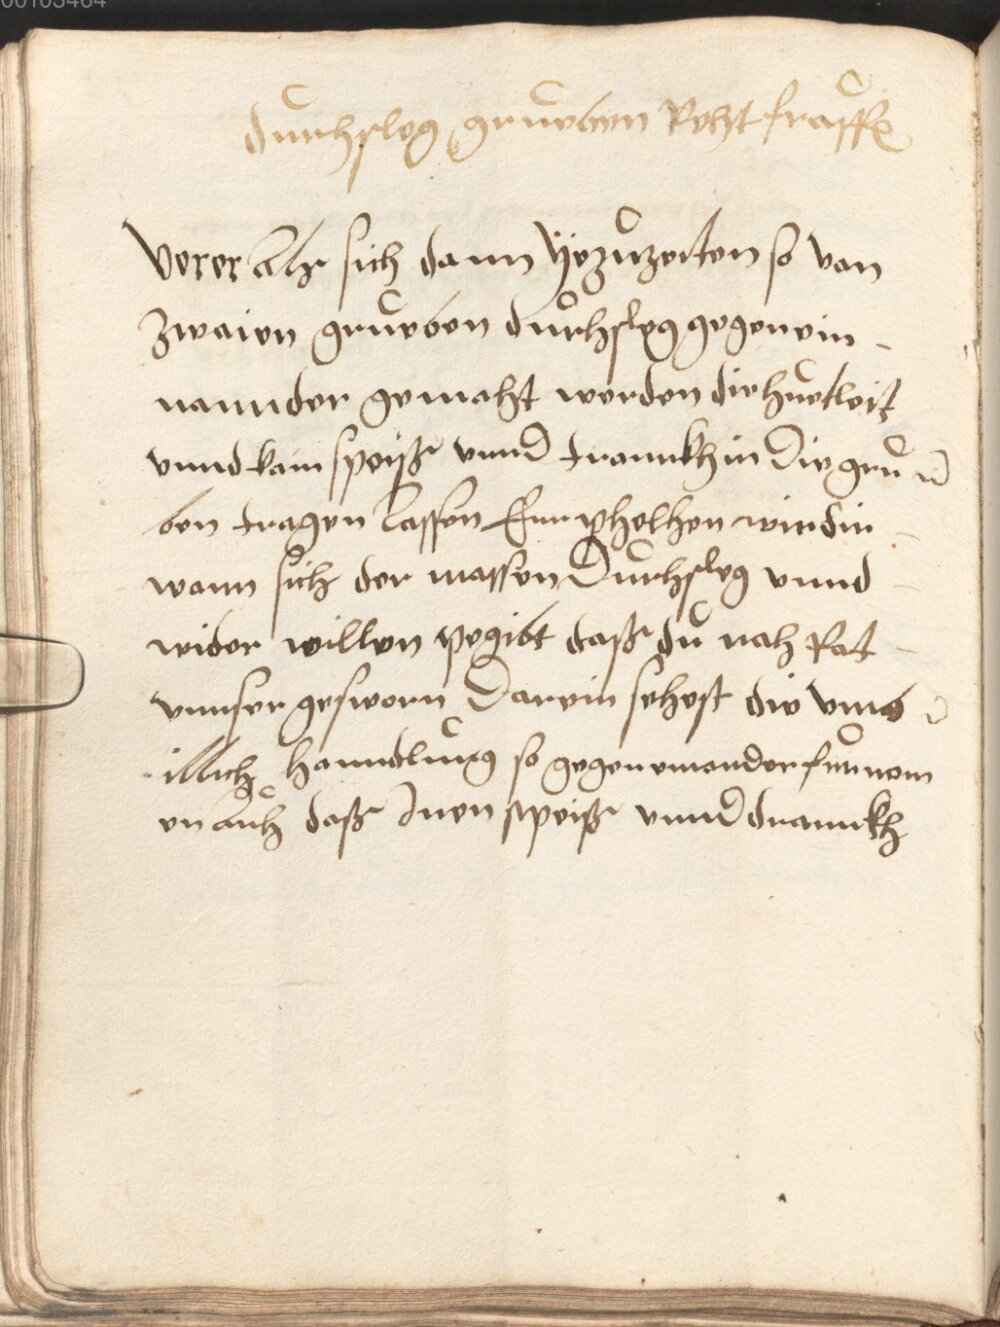 00103464
durchsleg grueben Recht straffe
Verer Alß sich dann Yezuzeiten so von
zwaien grueben durchsleg gegenein
nannder gemacht werden die huetleit
vnnd kain speiß vnnd trannkh in die grue
ben tragen lassen Emphelhen wir dir
wann sich der massen Durchsleg vnnd
wider willen pegibt daß du nach Rat
vnnser gesworn Darein sehest die vnb
illich hanndlung so gegenemander furnem
en auch daß Inen speiß vnnd drannkh